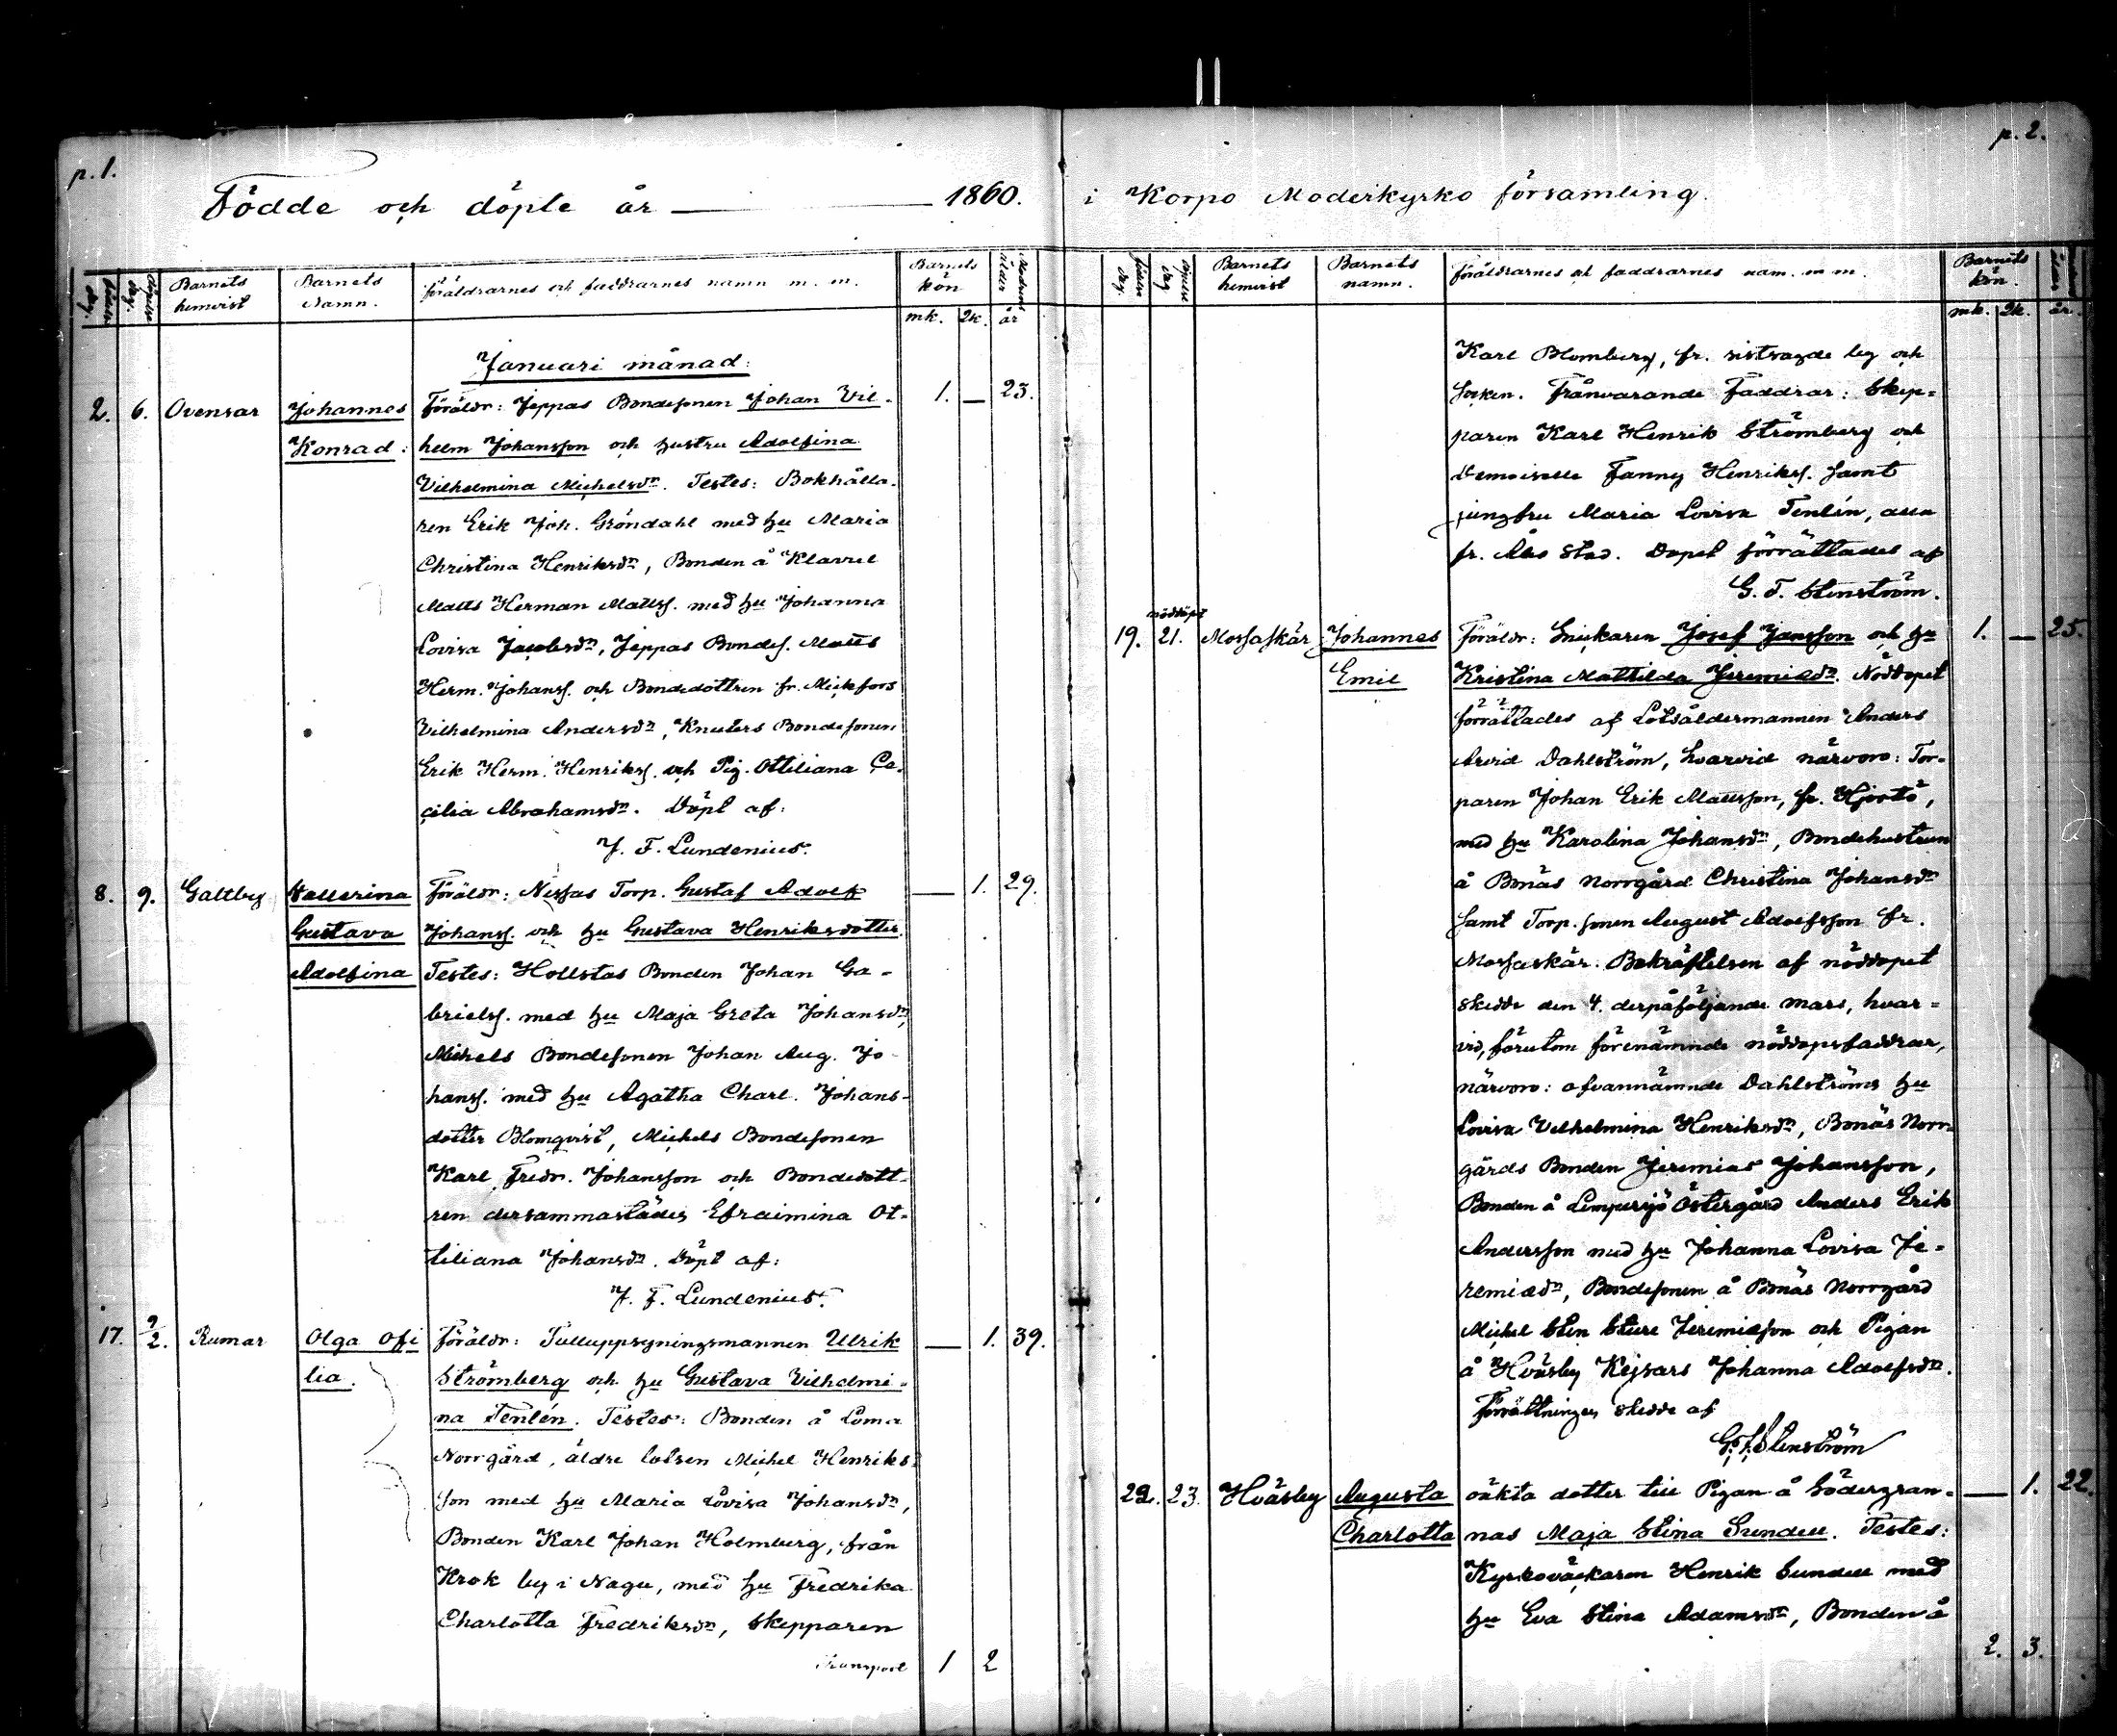 p. 1.
Födde och döpte år 1860.
Födelse dag. Döpelse dag. Barnets hemvist Barnets Namn. föräldrarnes och faddrarnes namn m. m. Barnets kön Modrens ålder
mk. qk. år
Januari månad:
2. 6. Ovensar Johannes Föräldr: Jeppas Bondesonen Johan Vil- 1. — 23.
Konrad: helm Johansson och hustru Adolfina
Vilhelmina Michelsdr. Testes: Bokhålla-
ren Erik Joh. Gröndahl med hu Maria
Christina Henriksdr, Bonden å Klavul
Matts Herman Mattss. med hu Johanna
Lovisa Jacobsdr, Jeppas Bondes. Matts
Herm. Johanss. och Bondedottren fr. Mickfors
Vilhelmina Andersdr, Knuters Bondesonen
Erik Herm. Henrikss. och Pig. Ottiliana Ce-
cilia Abrahamsdr. Döpt af:
J. F. Lundenius.
8. 9. Galtby Vallerina Föräldr: Nissas Torp. Gustaf Adolf — 1. 29.
Gustava Johanss. och hu Gustava Henriksdotter.
Adolfina Testes: Hollstas Bonden Johan Ga-
brielss. med hu Maja Greta Johansdr,
Michels Bondesonen Johan Aug. Jo-
hanss. med hu Agatha Charl. Johans-
dotter Blomqvist, Michels Bondesonen
Karl Fredr. Johansson och Bondedott-
ren dersammastädes Efraimina Ot-
tiliana Johansdr. Döpt af:
J. F. Lundenius.
17. 9/2. Rumar Olga Ofi Föräldr: Tulluppsyningsmannen Ulrik — 1. 39.
lia. Strömberg och hu Gustava Vilhelmi-
na Tenlén. Testes: Bonden å Loma
Norrgård, äldre lotsen Michel Henriks-
son med hu Maria Lovisa Johansdr,
Bonden Karl Johan Holmberg, från
Krok by i Nagu, med hu Fredrika
Charlotta Fredriksdr, Skepparen
Transport 1 2
p. 2.
i Korpo Moderkyrko församling.
födelse dag. Döpelse dag Barnets hemvist Barnets namn. föräldrarnes och faddrarnes nam. m m. Barnets kön. Modrens ålder
mk. qk. år.
Karl Blomberg, fr. sistsagde by och
Socken. Frånvarande Faddrar: Skep-
paren Karl Henrik Strömberg och
Demoiselle Fanny Henrikss. samt
jungfru Maria Lovisa Tenlén, alla
fr. Åbo Stad. Dopet förrättades af
G. F. Stenström.
nöddöpt
19. 21. Mossaskär Johannes Föräldr: Snickaren Josef Jansson och hu 1. — 25.
Emil Kristina Mathilda Jeremiædr. Nöddopet
förrättades af Lotsåldermannen Anders
Arvid Dahlström, hvarvid närvoro: Tor-
paren Johan Erik Mattsson, fr. Hjortö,
med hu Karolina Johansdr, Bondehustrun
å Bonäs Norrgård Christina Johansdr
samt Torp. sonen August Adolfsson fr.
Mossaskär. Bekräftelsen af nöddopet
skedde den 4. derpåföljande mars, hvar-
vid, förutom förenämnde nöddopsfaddrar,
närvoro: ofvannämnde Dahlströms hu
Lovisa Vilhelmina Henriksdr, Bonäs Norr-
gårds Bonden Jeremias Johansson,
Bonden å Limpersjö Östergård Anders Erik
Andersson med hu Johanna Lovisa Je-
remiædr, Bondesonen å Bonäs Norrgård
Michel Sten Sture Jeremiæson och Pigan
å Hväsby Kejsars Johanna Adolfsdr.
Förrättningen skedde af
G. F. Stenström
22. 23. Hväsby Augusta oäkta dotter till Pigan å Södergran- — 1. 22.
Charlotta nas Maja Stina Sundell. Testes:
Kyrkoväckaren Henrik Sundell med
hu Eva Stina Adamsdr, Bonden å
2. 3.